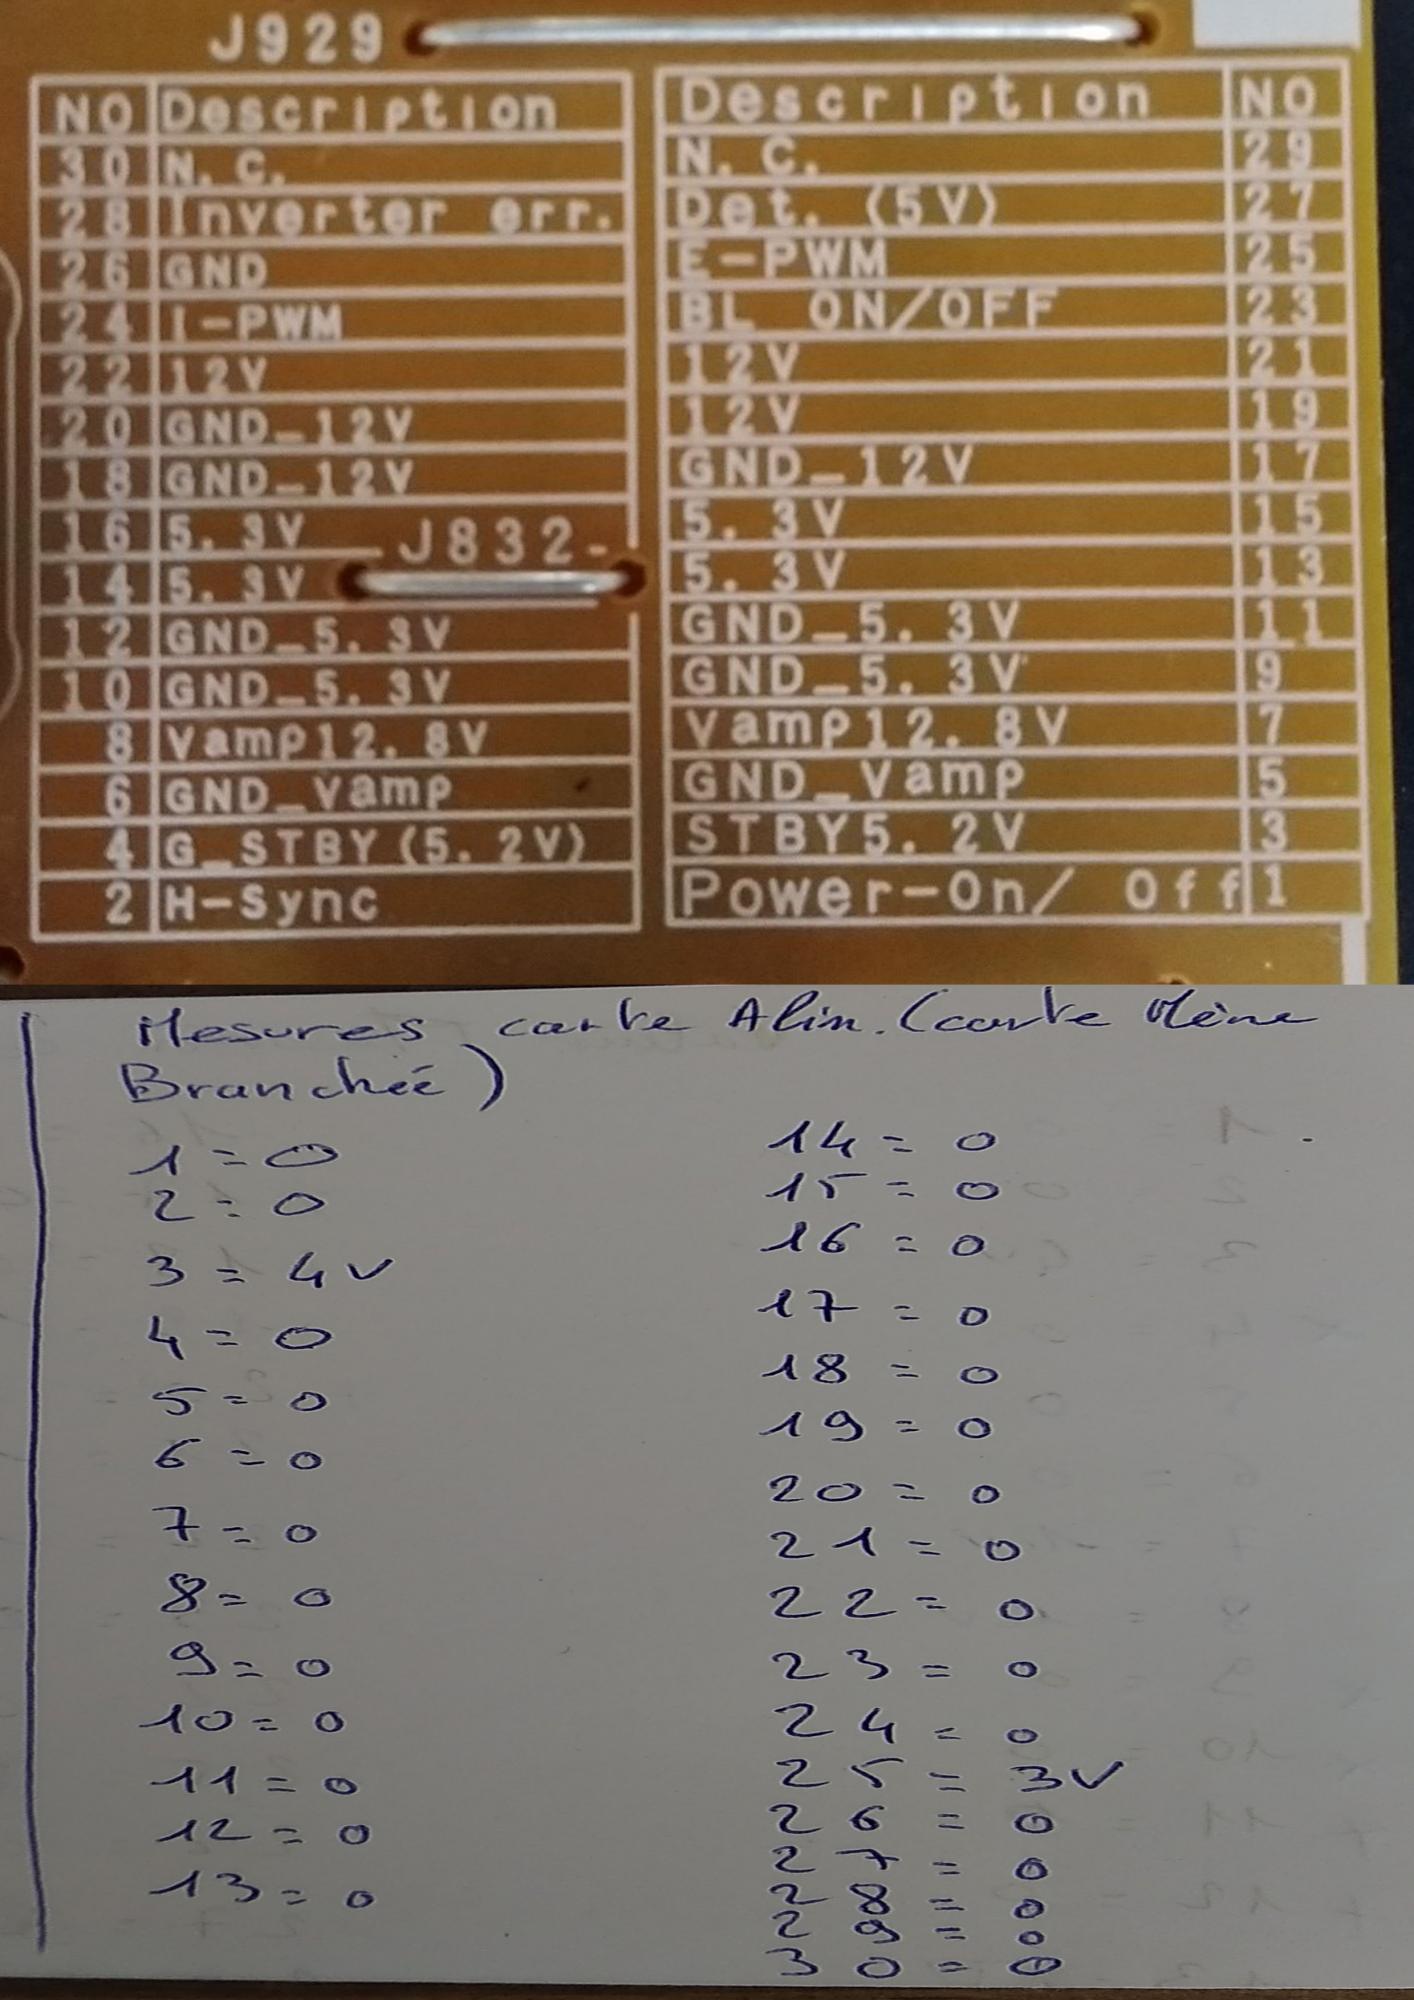 J929
NO Description
30 N.C.
28 Inverter err.
26 GND
24 I-PWM
22 12V
20 GND_12V
18 GND_12V
16 5.3V
J832
14 5.3V
12 GND_5.3V
10 GND_5.3V
8 Vamp12.8V
6 GND_Vamp
4 G_STBY(5.2V)
2 H-Sync
Description NO
N.C. 29
Det.(5V) 27
E-PWM 25
BL ON/OFF 23
12V 21
12V 19
GND_12V 17
5.3V 15
5.3V 13
GND_5.3V 11
GND_5.3V 9
Vamp12.8V 7
GND_Vamp 5
STBY5.2V 3
Power-On/ Off 1
Mesures carte Alim. (carte Mène
Branchéé)
1 = 0
2 = 0
3 = 4V
4 = 0
5 = 0
6 = 0
7 = 0
8 = 0
9 = 0
10 = 0
11 = 0
12 = 0
13 = 0
14 = 0
15 = 0
16 = 0
17 = 0
18 = 0
19 = 0
20 = 0
21 = 0
22 = 0
23 = 0
24 = 0
25 = 3V
26 = 0
27 = 0
28 = 0
29 = 0
30 = 0